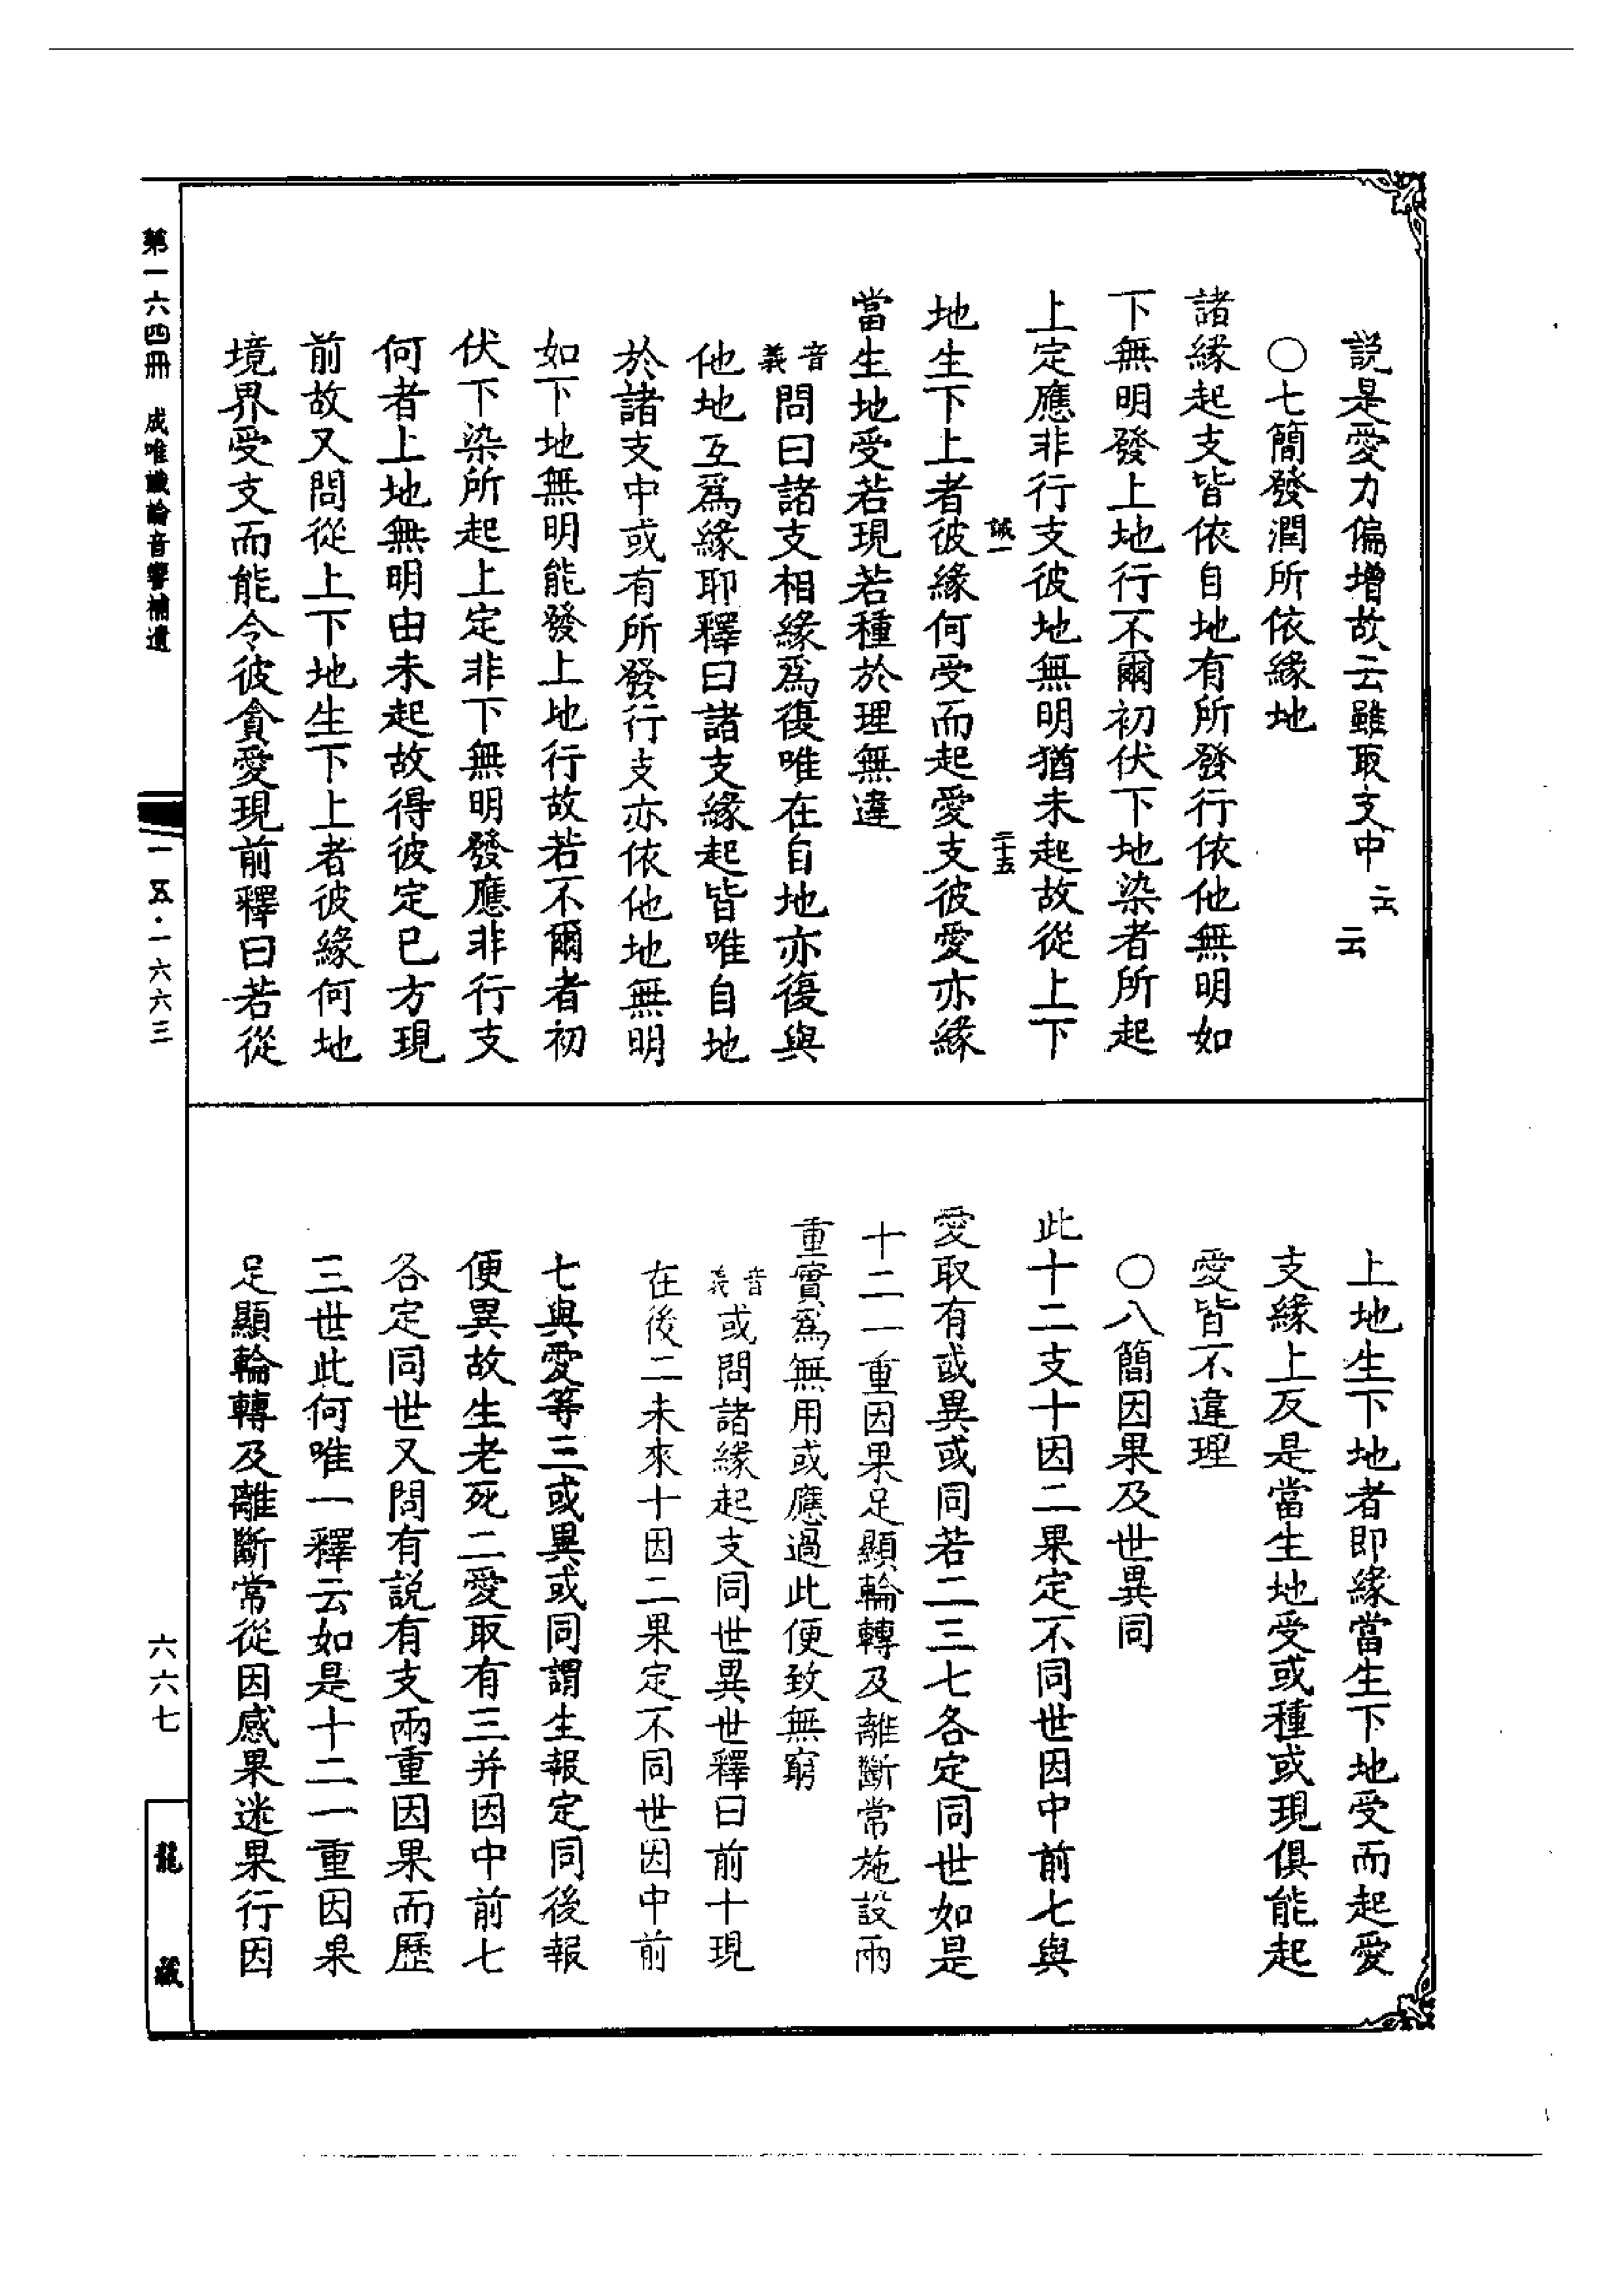 説是愛力偏增故云雖取支中云云
○七簡發潤所依緣地
諸緣起支皆依自地有所發行依他無明如
下無明發上地行不爾初伏下地染者所起
上定應非行支彼地無明猶未起故從上下
誠一 二十五
地生下上者彼緣何受而起愛支彼愛亦緣
當生地受若現若種於理無違
音義問曰諸支相緣爲復唯在自地亦復與
他地互爲緣耶釋曰諸支緣起皆唯自地
於諸支中或有所發行支亦依他地無明
如下地無明能發上地行故若不爾者初
伏下染所起上定非下無明發應非行支
何者上地無明由未起故得彼定已方現
前故又問從上下地生下上者彼緣何地
境界受支而能令彼貪愛現前釋曰若從
上地生下地者即緣當生下地受而起愛
支緣上反是當生地受或種或現俱能起
愛皆不違理
○八簡因果及世異同
此十二支十因二果定不同世因中前七與
愛取有或異或同若二三七各定同世如是
十二一重因果足顯輪轉及離斷常施設兩
重實爲無用或應過此便致無窮
音義或問諸緣起支同世異世釋曰前十現
在後二未來十因二果定不同世因中前
七與愛等三或異或同謂生報定同後報
便異故生老死二愛取有三并因中前七
各定同世又問有説有支兩重因果而歷
三世此何唯一釋云如是十二一重因果
足顯輪轉及離斷常從因感果迷果行因
第一六四冊 成唯識論音響補遺
一五·一六六三
六六七
龍藏